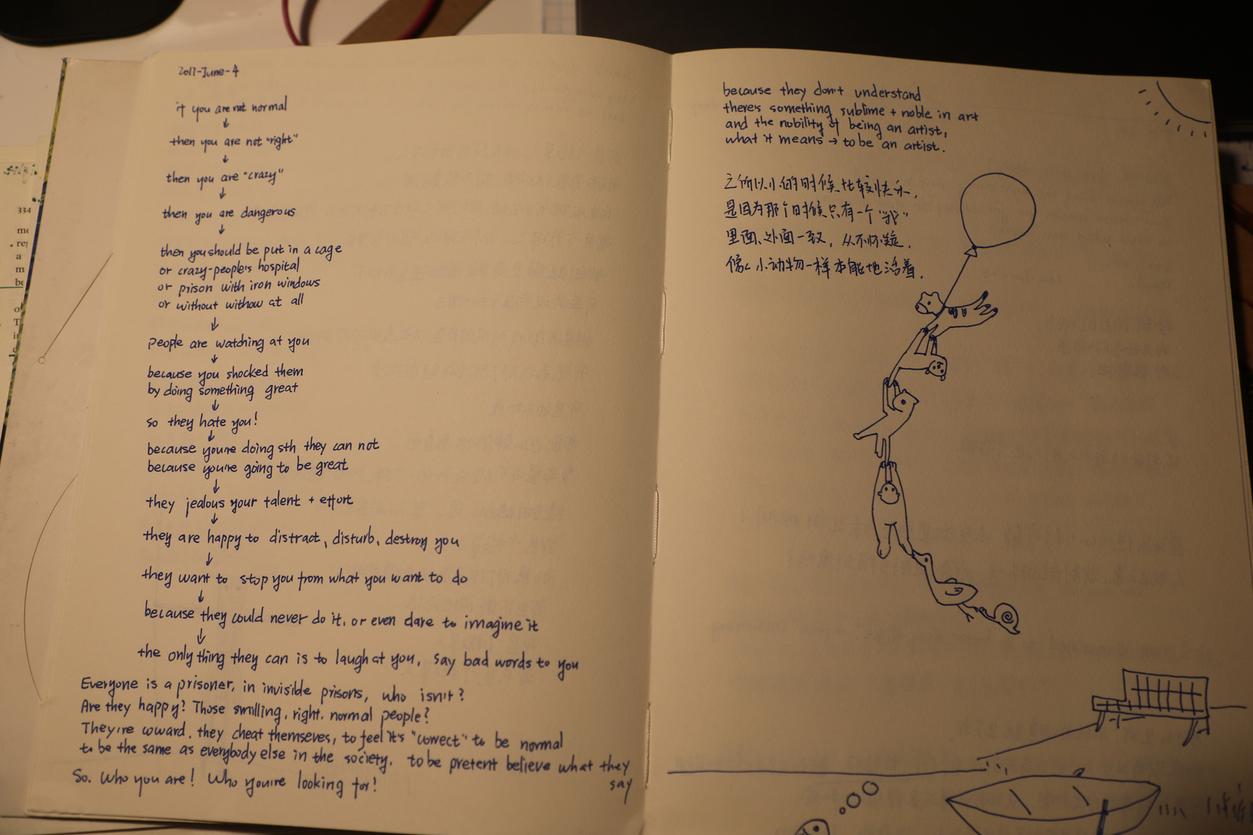 2011-June-4
if you are not normal
↓
then you are not "right"
↓
then you are "crazy"
↓
then you are dangerous
↓
then you should be put in a cage
or crazy-people's hospital
or prison with iron windows
or without withow at all
↓
people are watching at you
↓
because you shocked them
by doing something great
↓
so they hate you!
↓
because you're doing sth they can not
because you're going to be great
↓
they jealous your talent + effort
↓
they are happy to distract, disturb, destroy you
↓
they want to stop you from what you want to do
↓
because they could never do it, or even dare to imagine it
↓
the only thing they can is to laugh at you, say bad words to you
Everyone is a prisoner, in invisible prisons, who isn't?
Are they happy? Those smilling, right, normal people?
They're coward, they cheat themseves, to feel it's "correct" to be normal
to be the same as everybody else in the society. to be pretent believe what they
say
So. Who you are! Who you're looking for!
because they don't understand
there's something sublime + noble in art
and the nobility of being an artist,
what it means → to be an artist.
之所以小的时候比较快乐,
是因为那个时候只有一个"我"
里面、外面一致, 从不怀疑.
像小动物一样本能地活着.